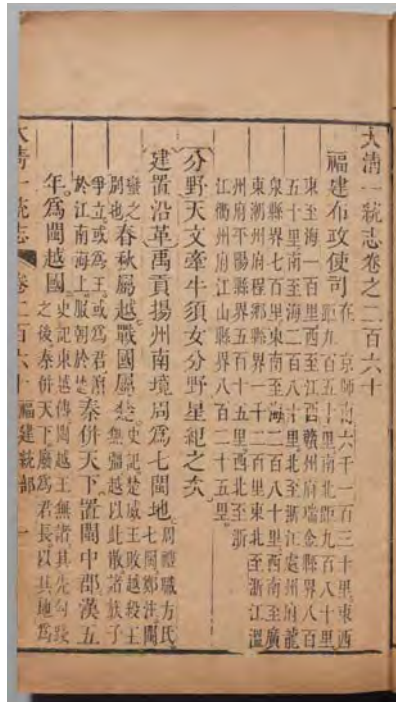 大清一統志卷之二百六十
福建布政使司在 京師南六千一百三十里東西
距九百五十里南北距九百八十里
東至海一百里西至江西贛州府瑞金縣界八百
五十里南至海二百八十里北至浙江處州府龍
泉縣界七百里東南至海二百八十里西南至廣
東潮州府程鄉縣界一千二百里東北至浙江溫
州府平陽縣界五百十五里西北至浙
江衢州府江山縣界八百二十五里
分野天文牽牛須女分野星紀之次
建置沿革禹貢揚州南境周爲七閩地周禮職方氏
七閩鄭注閩
蠻之
別也春秋屬越戰國屬楚史記楚威王敗越殺王
無彊越以此散諸族子
爭立或爲王或爲君濱
於江南海上服朝於楚秦併天下置閩中郡漢五
年爲閩越國史記東越傳閩越王無諸其先勾踐
之後秦併天下廢爲君長以其地爲
大清一統志 卷二百六十 福建統部 一